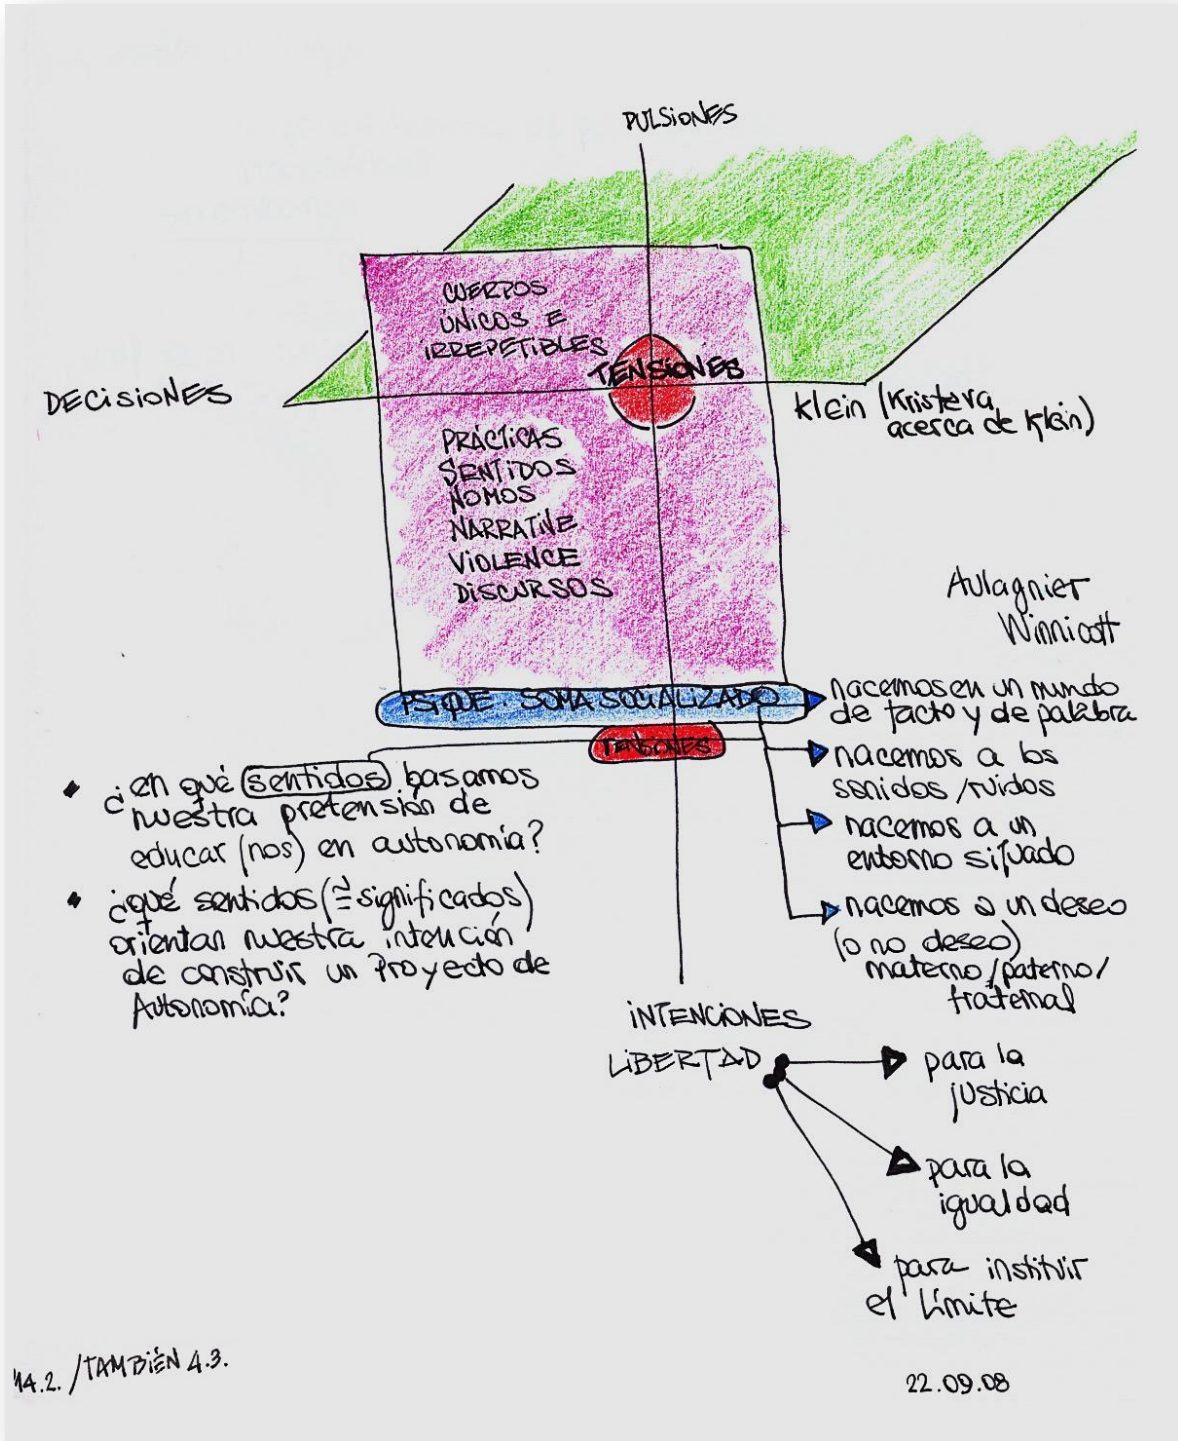 PULSIONES
CUERPOS
ÚNICOS E
IRREPETIBLES
TENSIONES
DECISIONES
Klein (Kristeva
acerca de Klein)
PRÁCTICAS
SENTIDOS
NOMOS
NARRATIVE
VIOLENCE
DISCURSOS
Aulagnier
Winnicott
PSIQUE. SOMA SOCIALIZADO
TENSIONES
nacemos en un mundo
de facto y de palabra
nacemos a los
sonidos / ruidos
nacemos a un
entorno situado
nacemos a un deseo
(o no deseo)
materno/paterno/
fraternal
¿en qué sentidos basamos
nuestra pretensión de
educar (nos) en autonomía?
¿qué sentidos (≅ significados)
orientan nuestra intención
de construir un Proyecto de
Autonomía?
INTENCIONES
LIBERTAD
para la
justicia
para la
igualdad
para instituir
el límite
14.2. / TAMBIÉN 4.3.
22.09.08